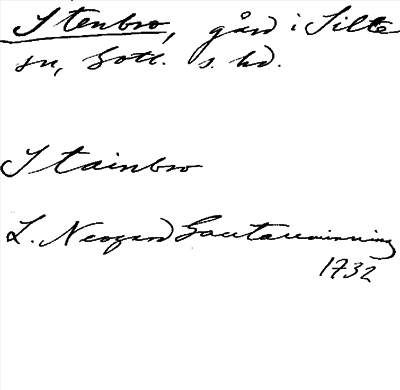 Stenbro, gård i Silte
sn, Gotl. s. hd.
Stainbro
L. Neogard Gautauminning
1732